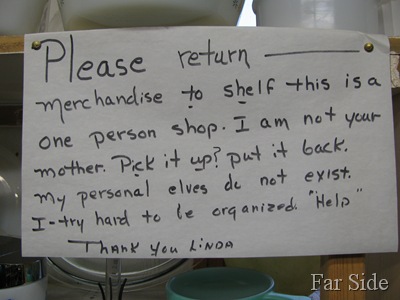 Please return
merchandise to shelf this is a
one person shop. I am not your
mother. Pick it up? put it back.
my personal elves do not exist.
I-try hard to be organized. "Help"
Thank you Linda
Far Side